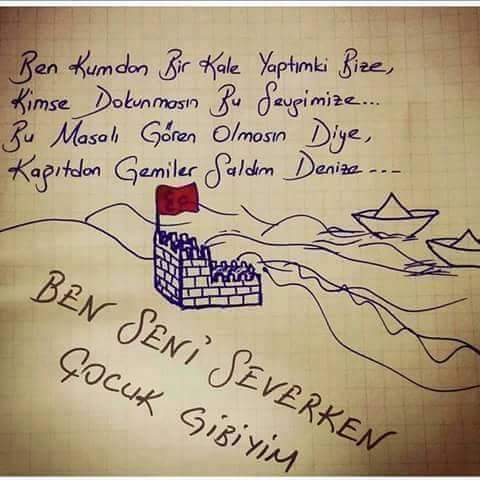 Ben Kumdan Bir Kale Yaptımki Bize,
Kimse Dokunmasın Bu Sevgimize...
Bu Masalı Gören Olmasın Diye,
Kağıtdan Gemiler Saldım Denize ---
BEN SENİ SEVERKEN
ÇOCUK GİBİYİM